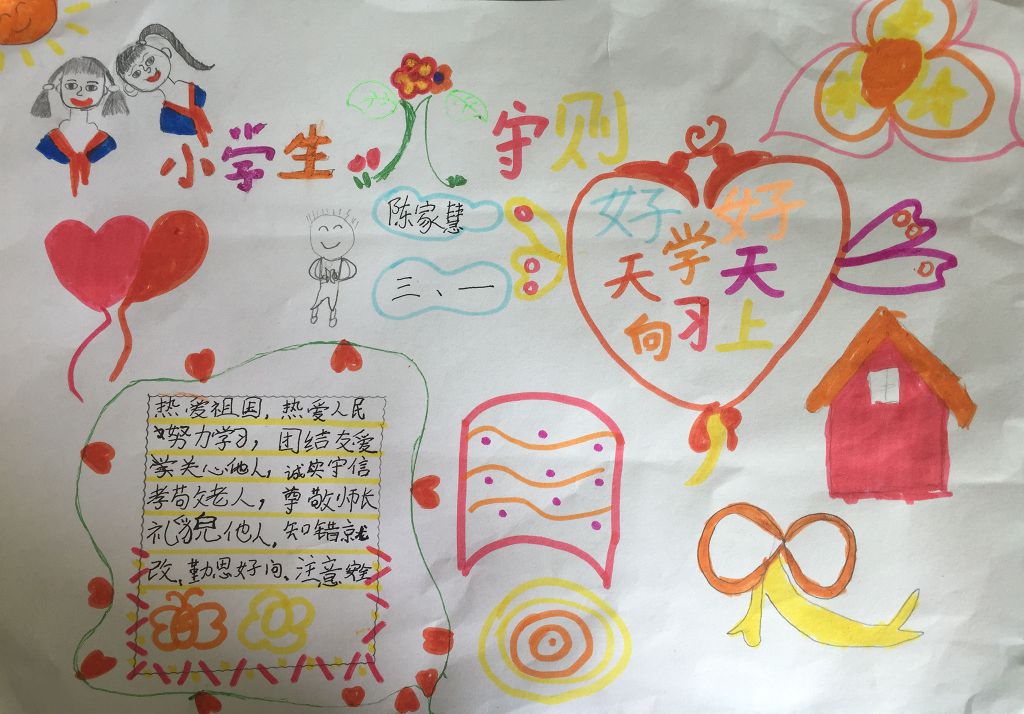 小学生守则
陈家慧
三、一
好好
学习
天天
向上
热爱祖国，热爱人民
努力学习，团结友爱
学关心他人，诚实守信
孝敬老人，尊敬师长
礼貌他人，知错就
改、勤思好问、注意安全